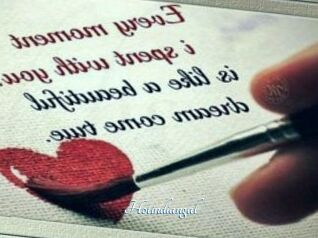 Every moment
i spent with you.
is like a beautiful
dream come true.